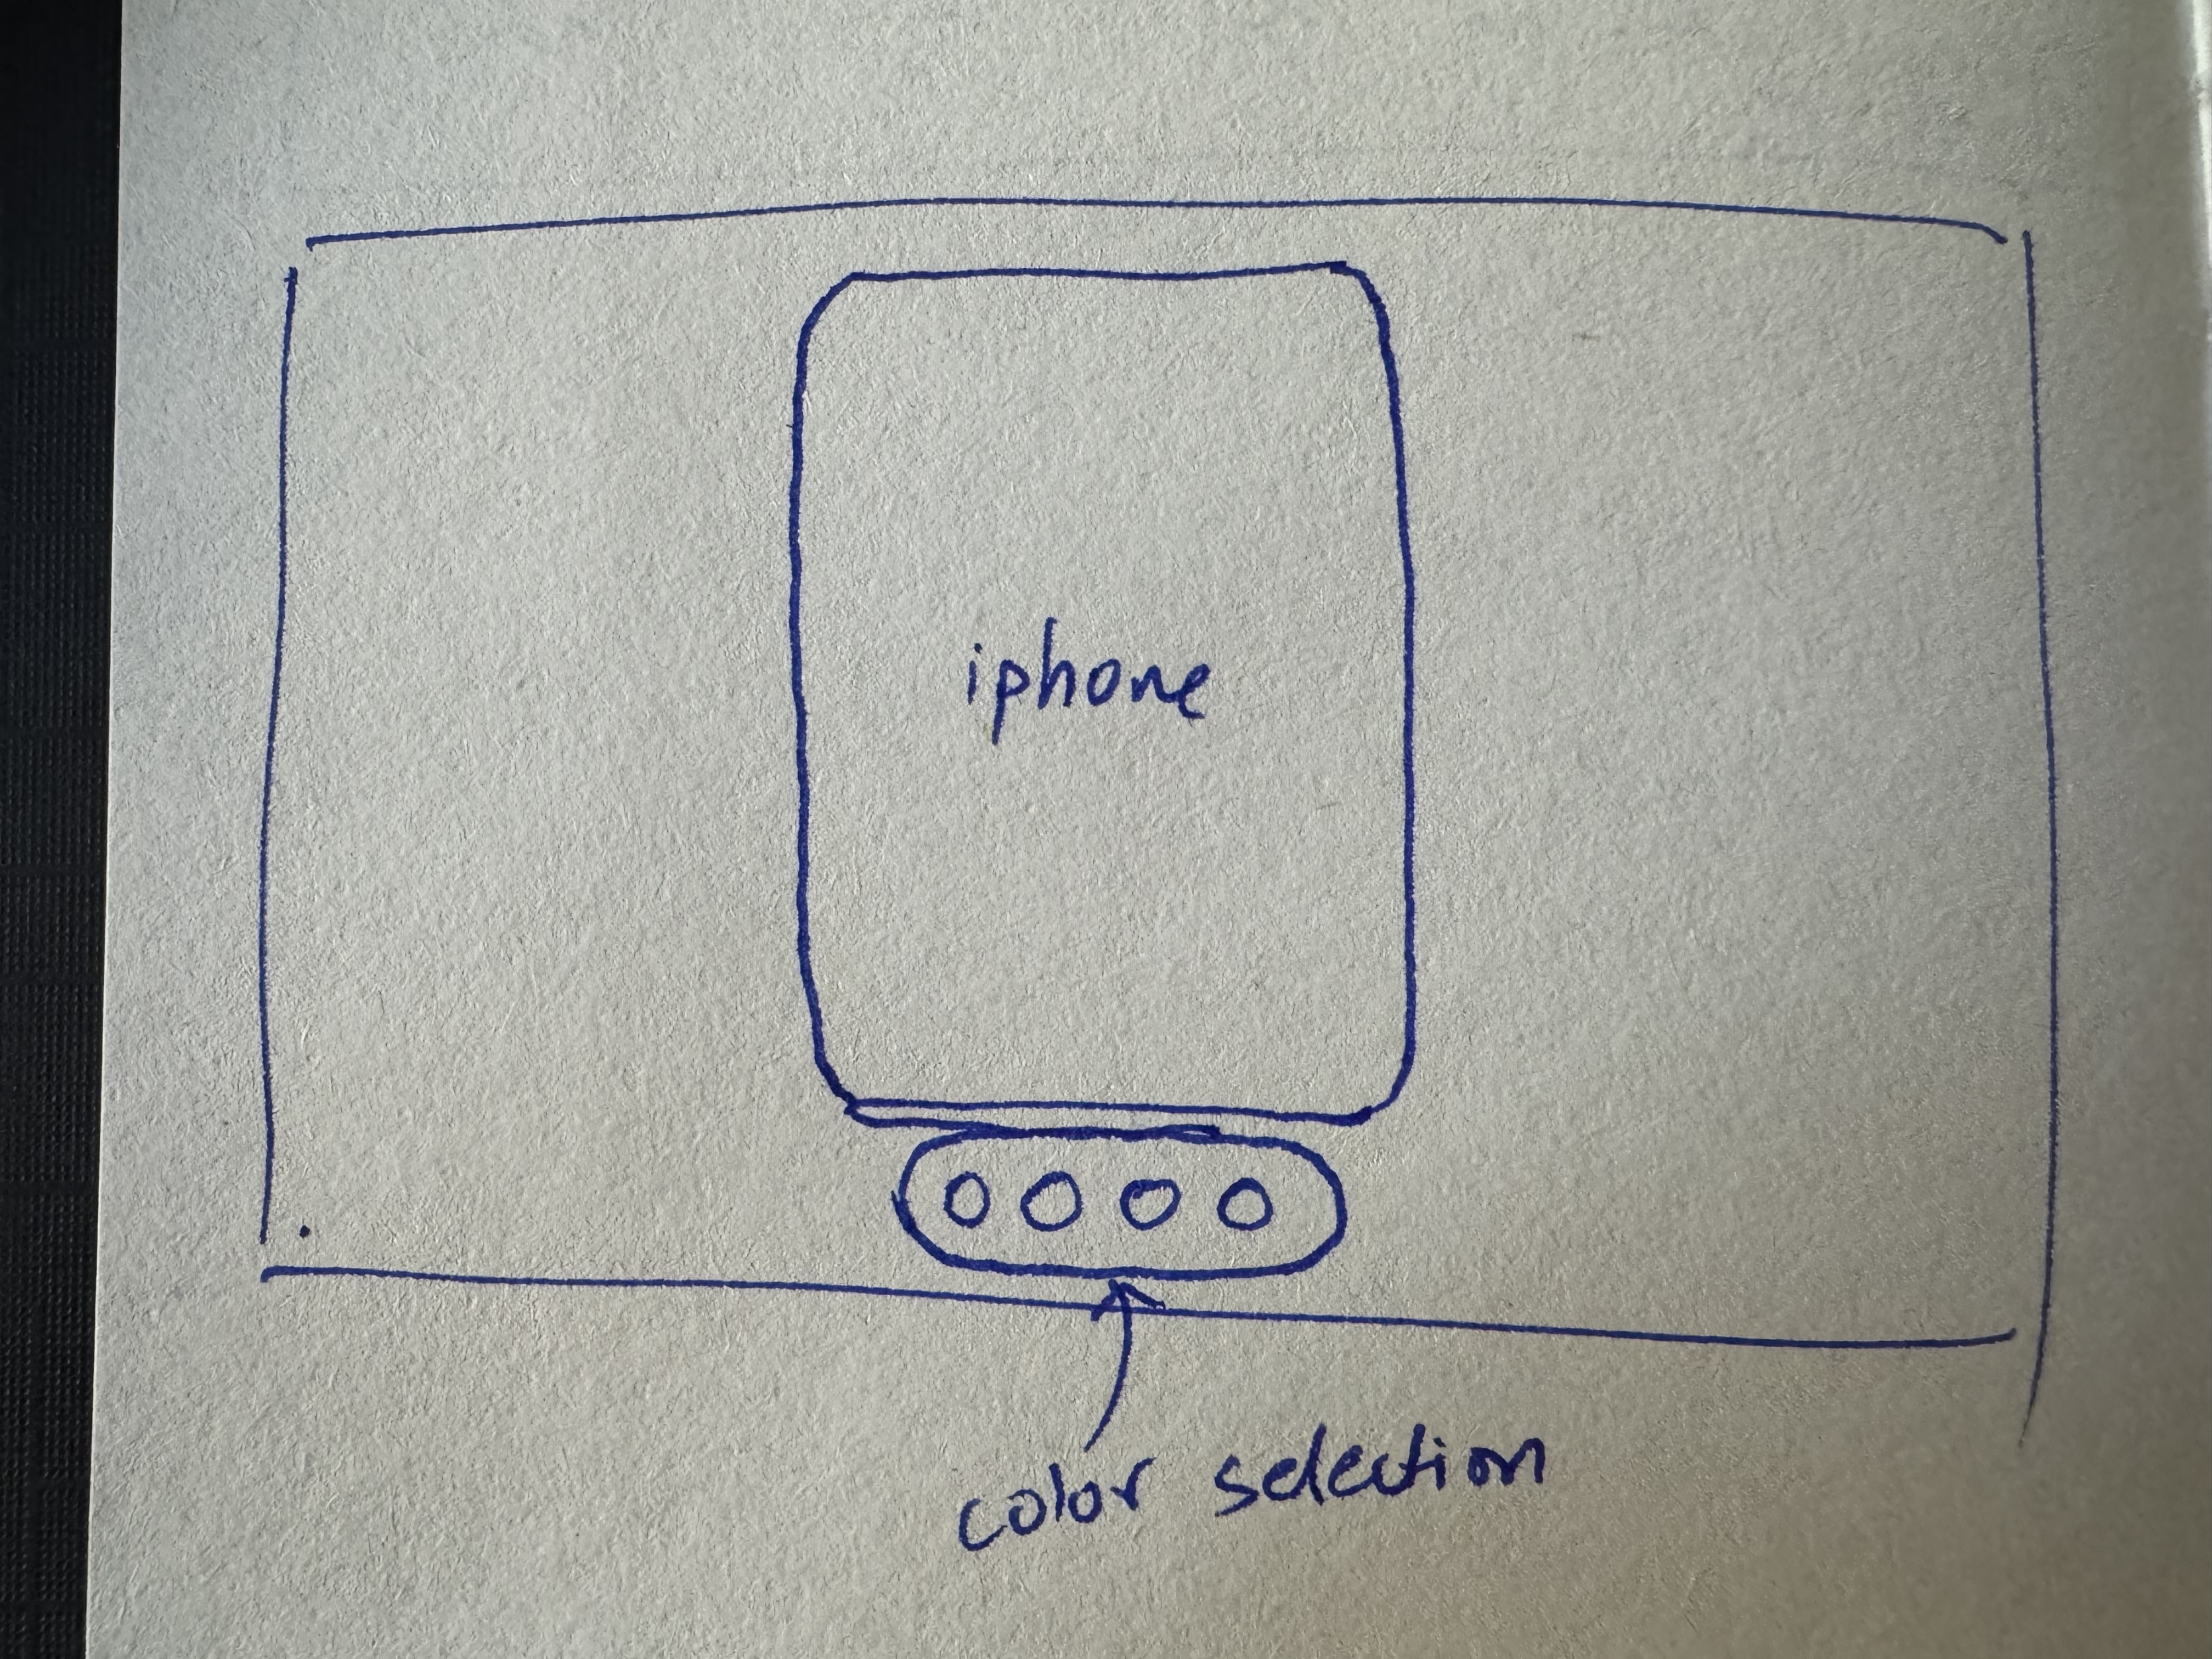 iphone
color selection